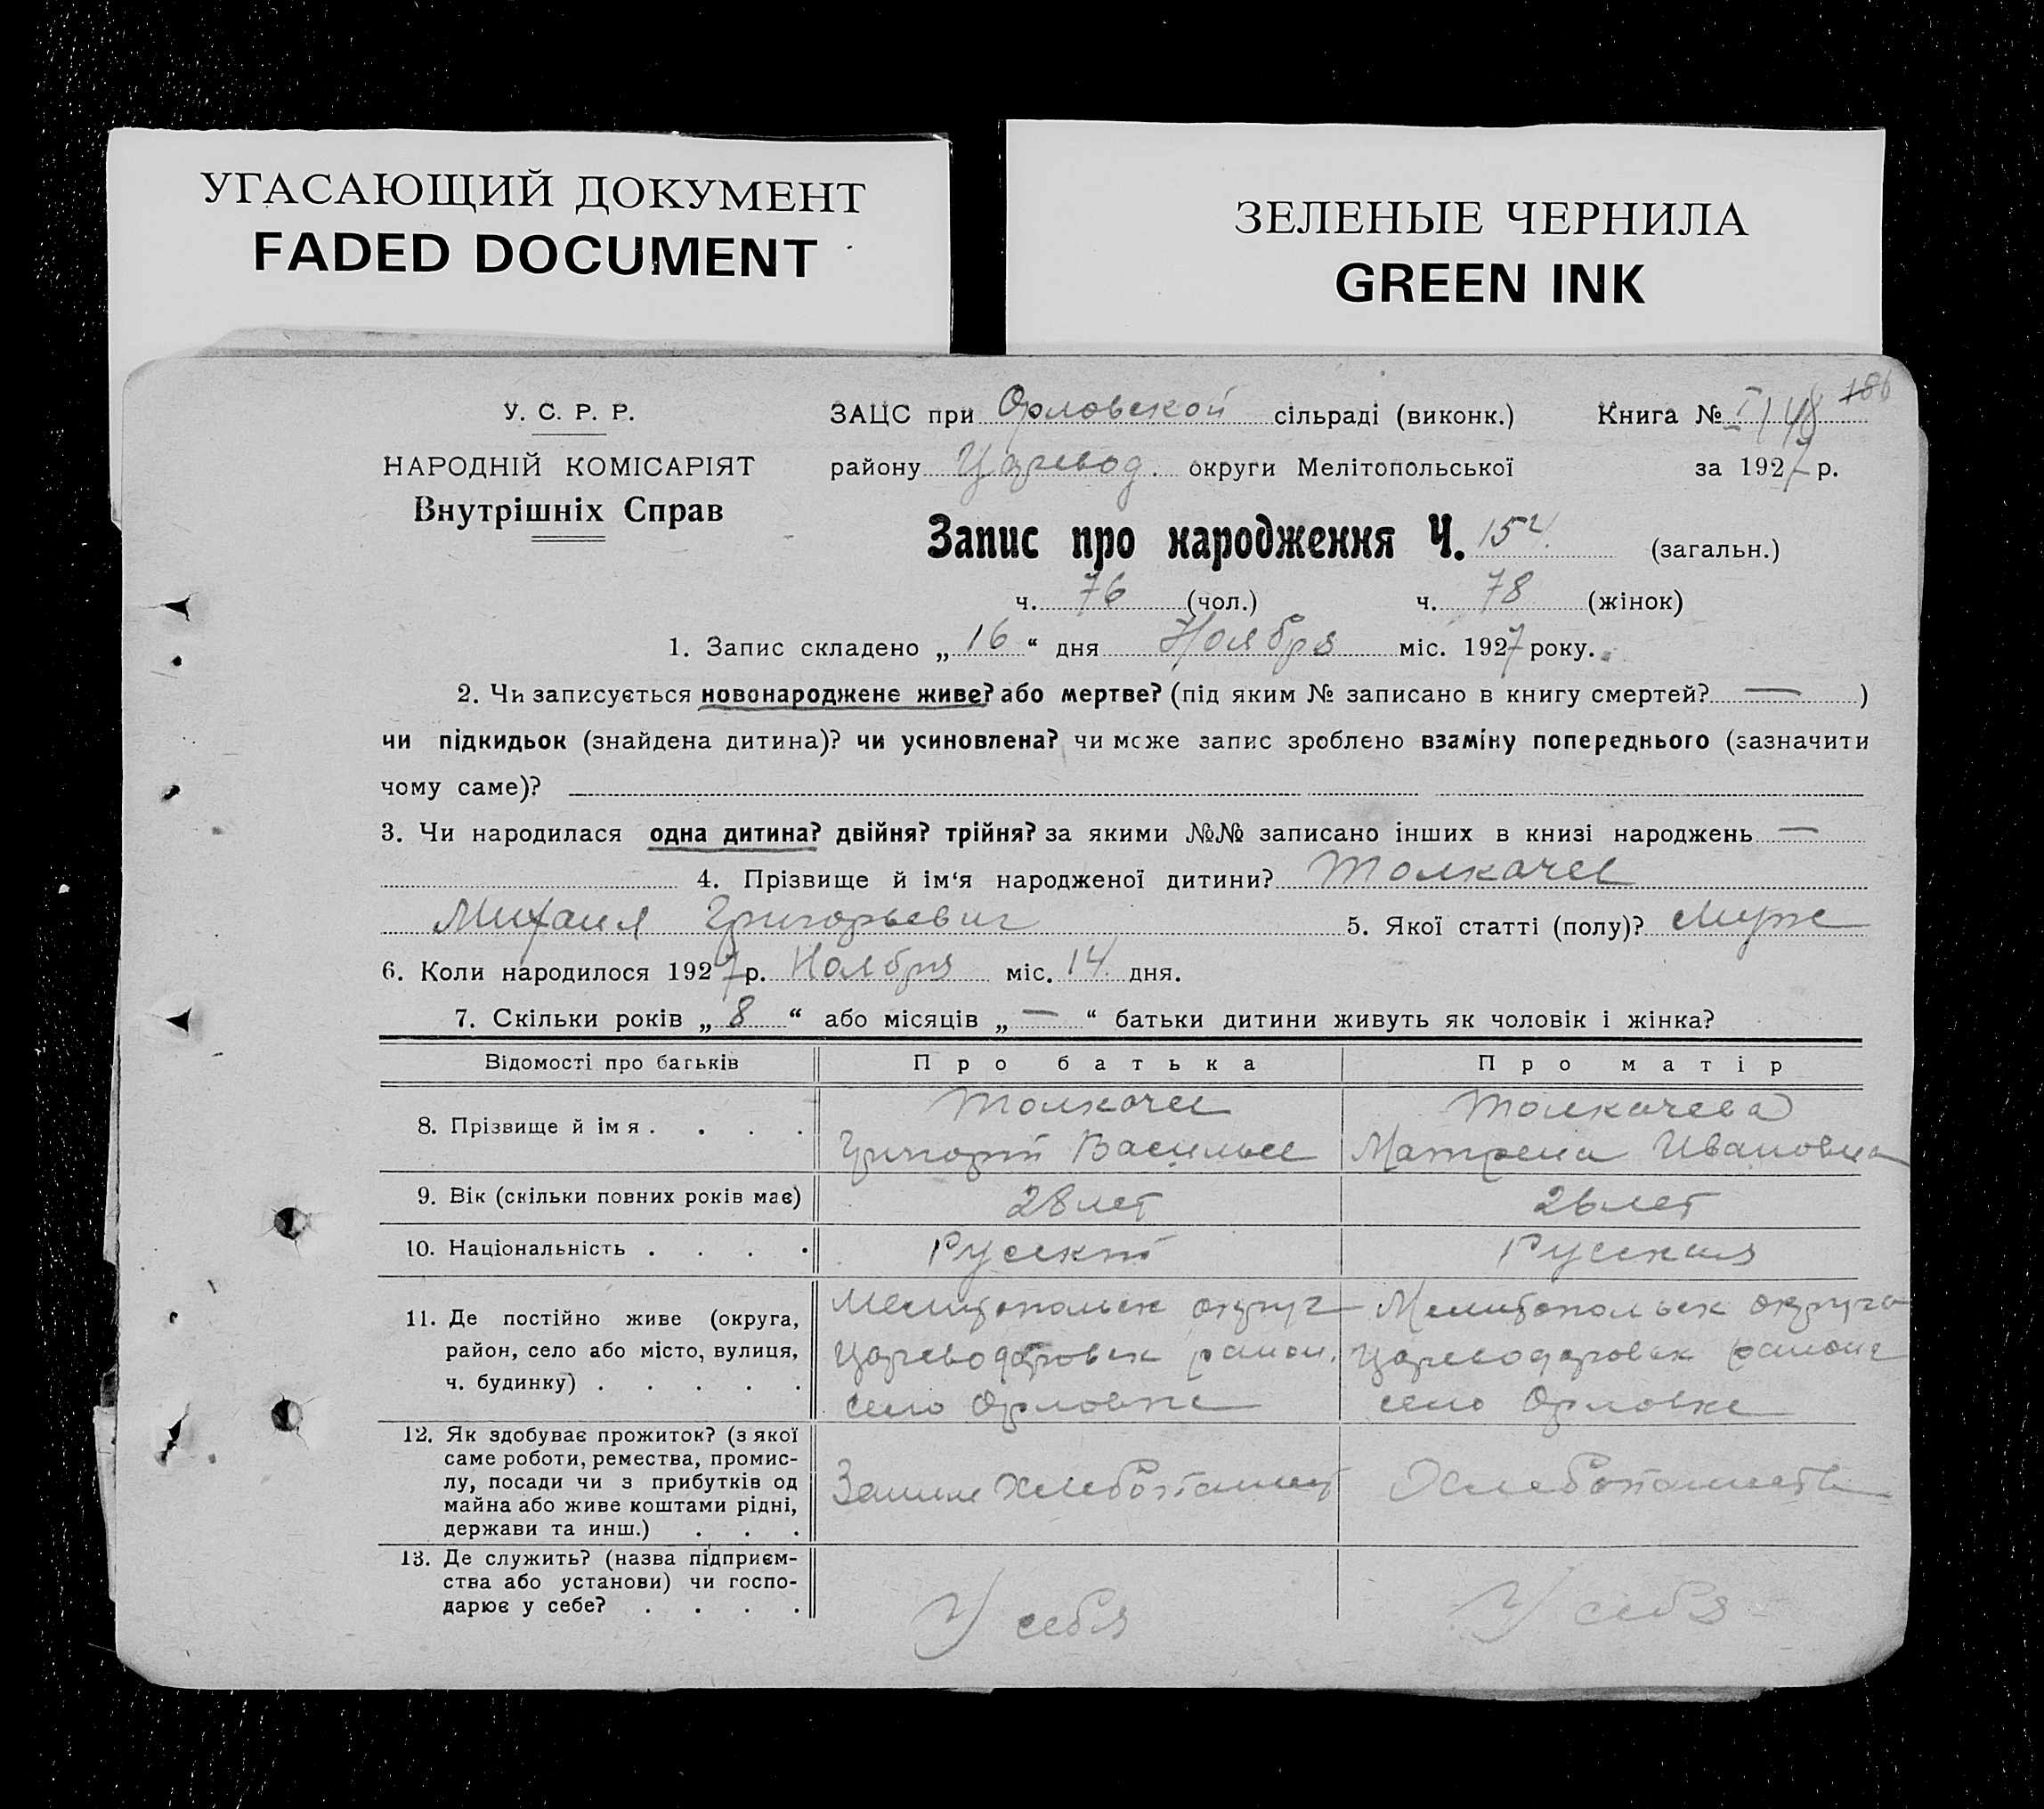 УГАСАЮЩИЙ ДОКУМЕНТ
FADED DOCUMENT
ЗЕЛЕНЫЕ ЧЕРНИЛА
GREEN INK
У. С. Р. Р.
НАРОДНІЙ КОМІСАРІЯТ
Внутрішніх Справ
ЗАЦС при Орловской сільраді (виконк.)
Книга № I/148 186
району Царевод. округи Мелітопольської
за 1927 р.
Запис про народження Ч. 154 (загальн.)
ч. 76 (чол.) ч. 78 (жінок)
1. Запис складено „ 16 “ дня Ноября міс. 1927 року.
2. Чи записується новонароджене живе? або мертве? (під яким № записано в книгу смертей? — )
чи підкидьок (знайдена дитина)? чи усиновлена? чи може запис зроблено взаміну попереднього (зазначити
чому саме)?
3. Чи народилася одна дитина? двійня? трійня? за якими №№ записано інших в книзі народжень —
4. Прізвище й ім‘я народженої дитини? Толкачев
Михаил Григорьевич 5. Якої статті (полу)? Муж
6. Коли народилося 1927 р. Ноября міс. 14 дня.
7. Скільки років „ 8 “ або місяців „ — “ батьки дитини живуть як чоловік і жінка?
Відомості про батьків Про батька Про матір
8. Прізвище й імя . . . .
Толкачев
Григорий Васильев
Толкачева
Матрена Ивановна
9. Вік (скільки повних років має) 28 лет 26 лет
10. Національність . . . . Русский Русская
11. Де постійно живе (округа,
район, село або місто, вулиця,
ч. будинку) . . . . .
Мелитопольск округ
Цареводаровск район.
село Орловке
Мелитопольск округа
Цареводаровск района
село Орловке
12. Як здобуває прожиток? (з якої
саме роботи, ремества, промис-
лу, посади чи з прибутків од
майна або живе коштами рідні,
держави та инш.) . . .
13. Де служить? (назва підприєм-
ства або установи) чи госпо-
дарює у себе? . . . .
У себя
У себя